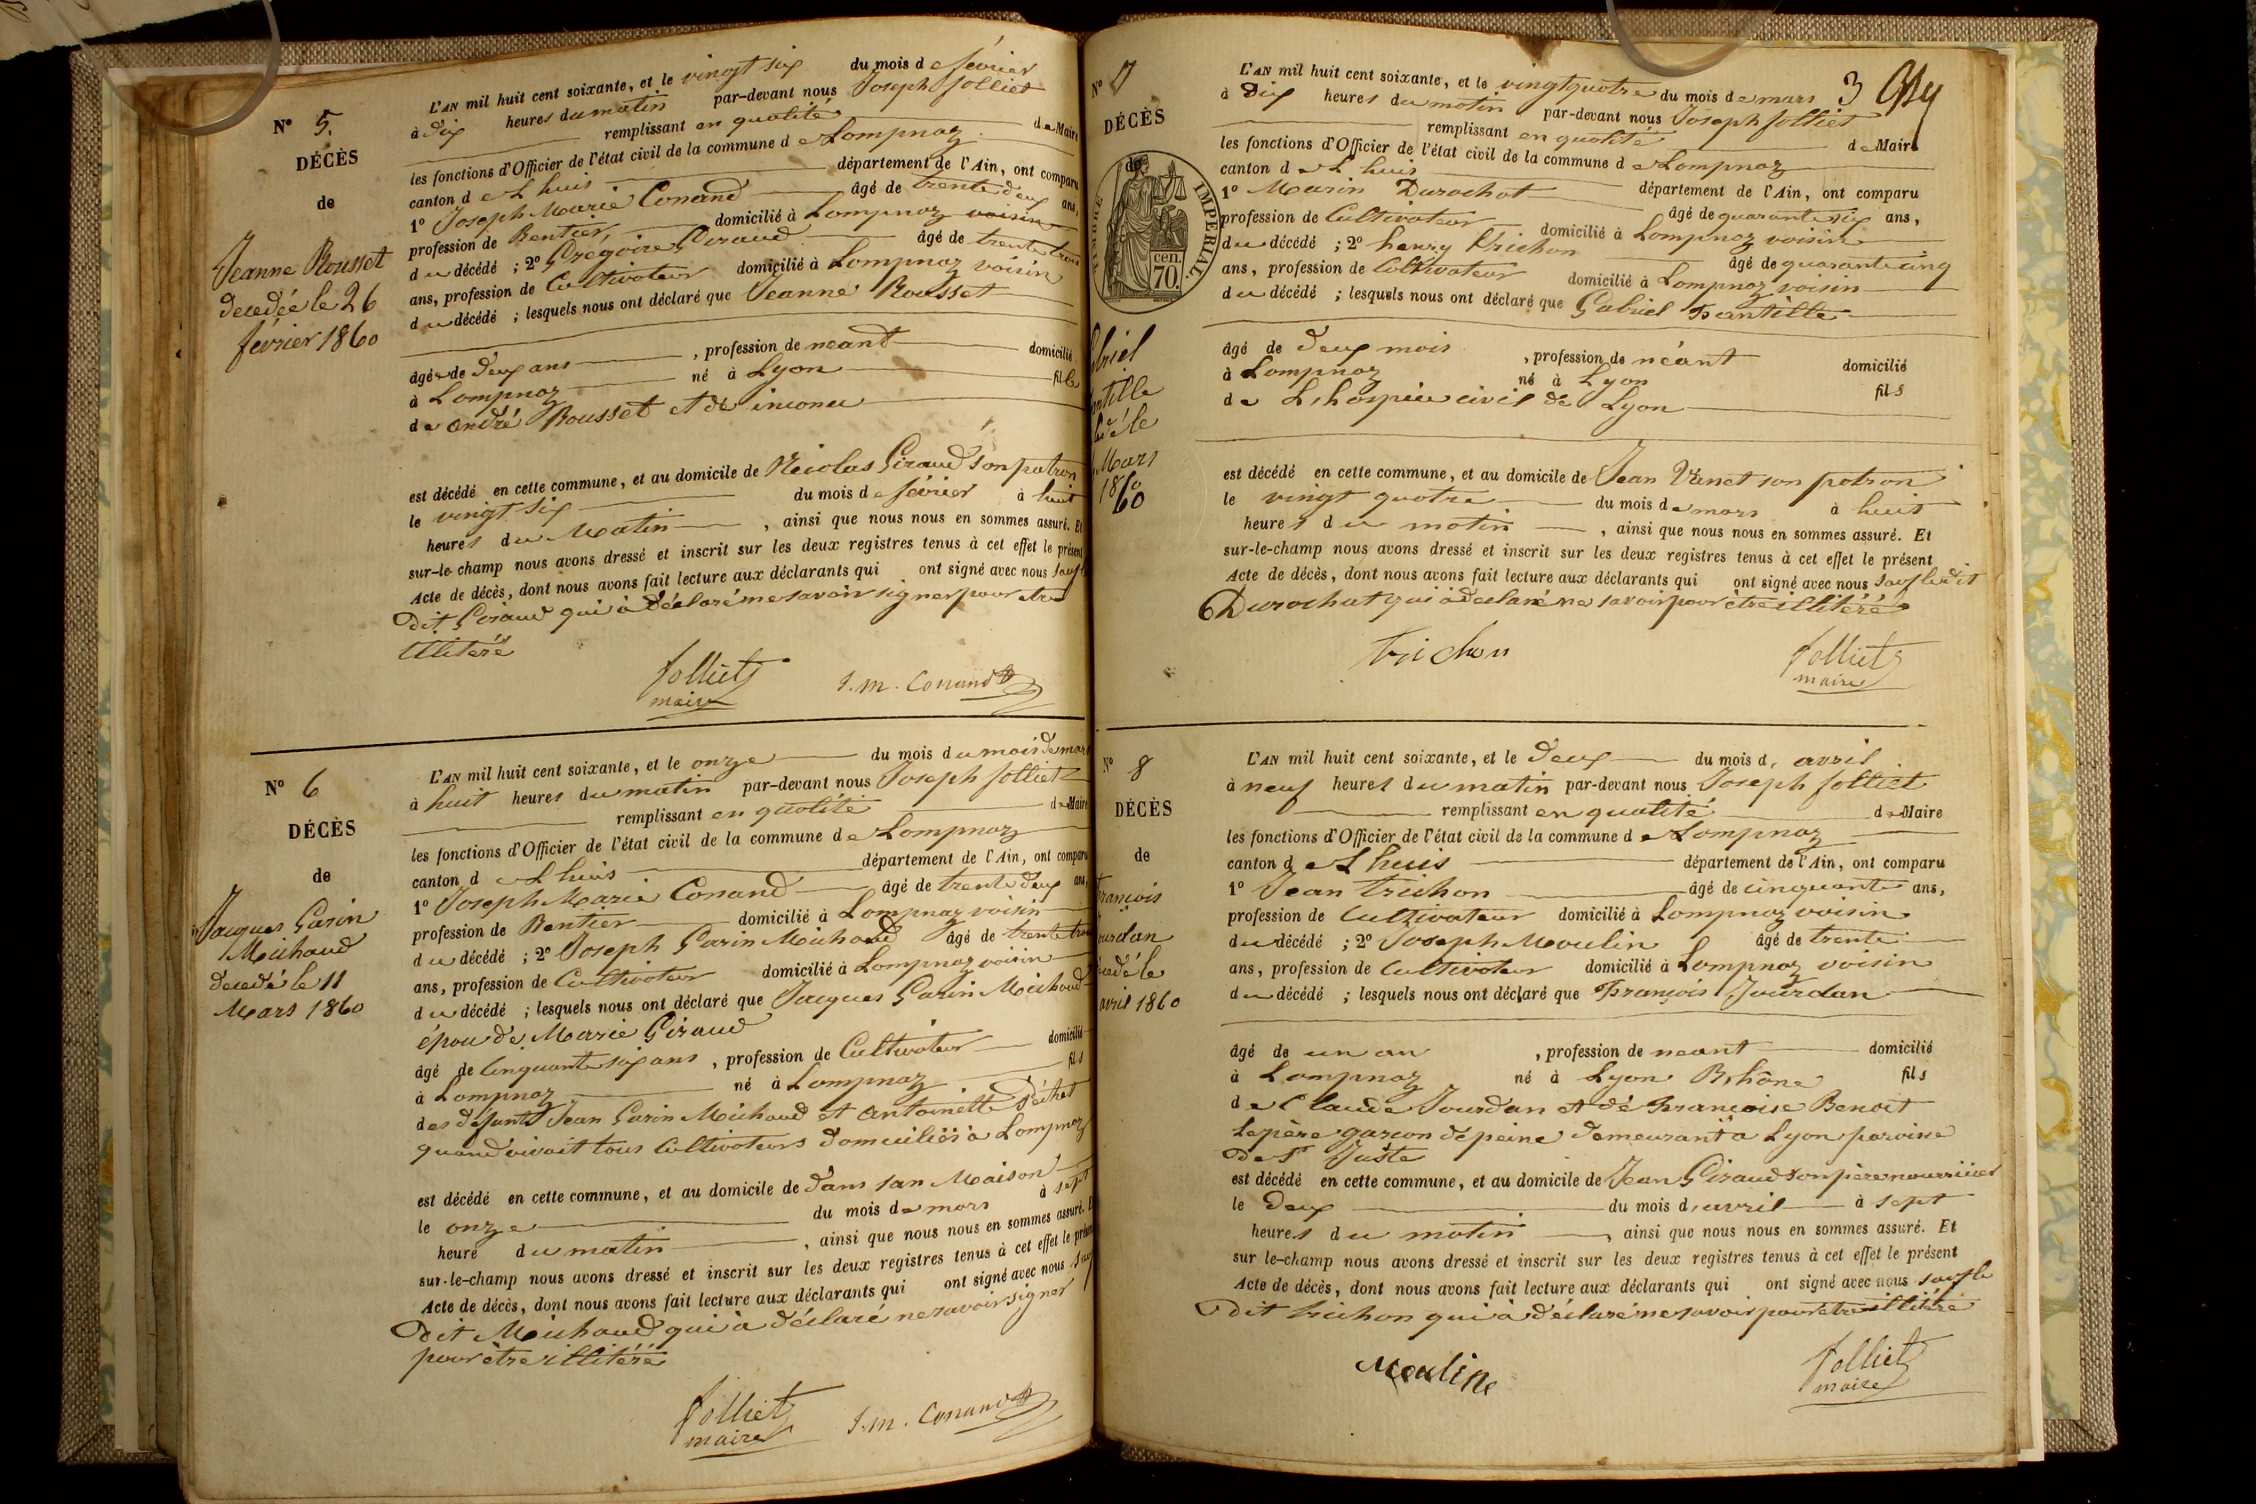 N° 5.
DÉCÈS
de
Jeanne Rousset
decedée le 26
février 1860
L'AN mil huit cent soixante, et le vingt six du mois de février
à dix heures du matin par-devant nous Joseph Jolliet
remplissant en qualité de Maire
les fonctions d'Officier de l'état civil de la commune de Lompnaz
canton de Lhuis département de l'Ain, ont comparu
1° Joseph Marie Conand âgé de trente deux ans,
profession de Rentier, domicilié à Lompnaz voisin
du décédé ; 2° Grégoire Giraud âgé de trente trois
ans, profession de Cultivateur domicilié à Lompnaz voisin
du décédé ; lesquels nous ont déclaré que Jeanne Rousset
âgée de deux ans , profession de neant domicilié
à Lompnaz né à Lyon fille
de andré Rousset et de inconnu
est décédé en cette commune, et au domicile de Nicolas Giraud son patron
le vingt six du mois de février à huit
heures du Matin , ainsi que nous nous en sommes assuré. Et
sur-le-champ nous avons dressé et inscrit sur les deux registres tenus à cet effet le présent
Acte de décès, dont nous avons fait lecture aux déclarants qui ont signé avec nous sauf le
dit Giraud qui à déclaré ne savoir signer pour etre
illitéré
Jolliet
maire
J. M. Conand
N° 6
DÉCÈS
de
Jacques Garin
Michaud
decedé le 11
Mars 1860
L'AN mil huit cent soixante, et le onze du mois du mois de mars
à huit heures du matin par-devant nous Joseph Jolliet
remplissant en qualité de Maire
les fonctions d'Officier de l'état civil de la commune de Lompnaz
canton de Lhuis département de l'Ain, ont comparu
1° Joseph Marie Conand âgé de trente deux ans,
profession de Rentier domicilié à Lompnaz voisin
du décédé ; 2° Joseph Garin Michaud âgé de trente trois
ans, profession de Cultivateur domicilié à Lompnaz voisin
du décédé ; lesquels nous ont déclaré que Jacques Garin Michaud
épou de Marie Giraud
âgé de Cinquante six ans , profession de Cultivateur domicilié
à Lompnaz né à Lompnaz fils
des défunts Jean Garin Michaud et antoinette
quand vivait tous Cultivateurs domiciliés à Lompnaz
est décédé en cette commune, et au domicile de dans san Maison
le onze du mois de mars à sept
heure du matin , ainsi que nous nous en sommes assuré. Et
sur-le-champ nous avons dressé et inscrit sur les deux registres tenus à cet effet le présent
Acte de décès, dont nous avons fait lecture aux déclarants qui ont signé avec nous sauf
dit Michaud qui à déclaré ne savoir signer
pour être illitéré
Jolliet
maire
J. M. Conand
3
N° 7
DÉCÈS
de
TIMBRE IMPÉRIAL.
cen.
70.
Mars
1860
L'AN mil huit cent soixante, et le vingt quatre du mois de mars
à Dix heures du matin par-devant nous Joseph Jolliet
remplissant en qualité de Maire
les fonctions d'Officier de l'état civil de la commune de Lompnaz
canton de Lhuis département de l'Ain, ont comparu
1° Marin Durochat âgé de quarante six ans,
profession de Cultivateur domicilié à Lompnaz voisin
du décédé ; 2° henry trichon âgé de quarante cinq
ans, profession de Cultivateur domicilié à Lompnaz voisin
du décédé ; lesquels nous ont déclaré que Gabriel
âgé de Deux mois , profession de néant domicilié
à Lompnaz né à Lyon fils
de L'hospice civil de Lyon
est décédé en cette commune, et au domicile de Jean son patron
le vingt quatre du mois de mars à huit
heures du matin , ainsi que nous nous en sommes assuré. Et
sur-le-champ nous avons dressé et inscrit sur les deux registres tenus à cet effet le présent
Acte de décès, dont nous avons fait lecture aux déclarants qui ont signé avec nous sauf le dit
Durochat qui à declaré ne savoir pour être illitéré
trichon
Jolliet
maire
N° 8
DÉCÈS
de
françois
avril 1860
L'AN mil huit cent soixante, et le Deux du mois d, avril
à neuf heures du matin par-devant nous Joseph Jolliet
remplissant en qualité de Maire
les fonctions d'Officier de l'état civil de la commune de Lompnaz
canton de Lhuis département de l'Ain, ont comparu
1° Jean trichon âgé de cinquante ans,
profession de Cultivateur domicilié à Lompnaz voisin
du décédé ; 2° Joseph Moulin âgé de trente
ans, profession de Cultivateur domicilié à Lompnaz voisin
du décédé ; lesquels nous ont déclaré que François Jourdan
âgé de un an , profession de neant domicilié
à Lompnaz né à Lyon Rhône fils
de Claude Jourdan et de Françoise Benoit
le père garcon de peine demeurant à Lyon paroisse
de St Juste
est décédé en cette commune, et au domicile de Jean Giraud son père nourricier
le Deux du mois d, avril à sept
heures du matin , ainsi que nous nous en sommes assuré. Et
sur le-champ nous avons dressé et inscrit sur les deux registres tenus à cet effet le présent
Acte de décès, dont nous avons fait lecture aux déclarants qui ont signé avec nous sauf le
dit trichon qui à déclaré ne savoir pour etre illitéré
Mouline
Jolliet
maire